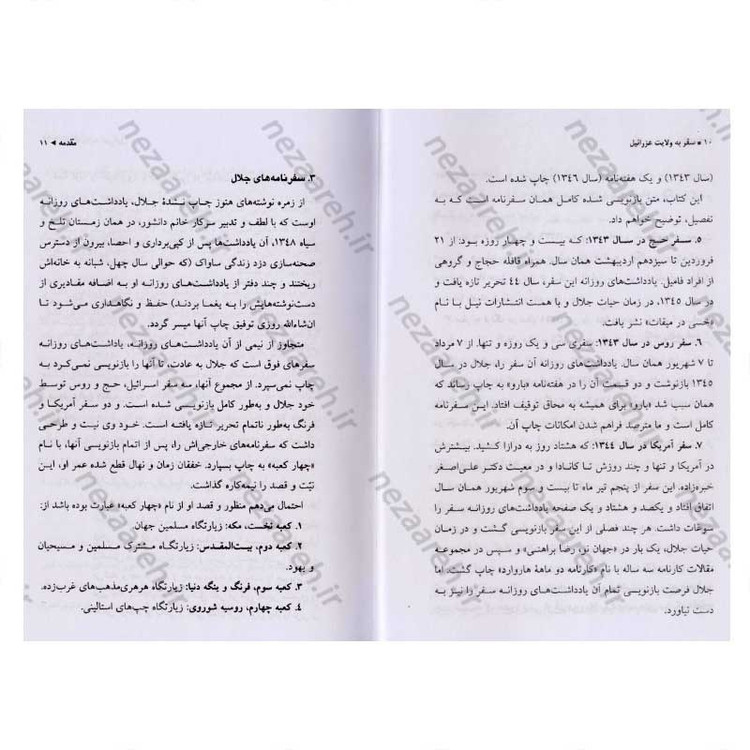 ۱۰ ▪ سفر به ولایت عزرائیل
(سال ۱۳۴۳) و یک هفته‌نامه (سال ۱۳۴۶) چاپ شده است.
این کتاب، متن بازنویسی شده کامل همان سفرنامه است که به
تفصیل، توضیح خواهم داد.
۵. سفر حج در سال ۱۳۴۳: که بیست و چهار روزه بود: از ۲۱
فروردین تا سیزدهم اردیبهشت همان سال. همراه قافله حجاج و گروهی
از افراد فامیل. یادداشت‌های روزانه این سفر، سال ۴۴ تحریر تازه یافت و
در سال ۱۳۴۵، در زمان حیات جلال و با همت انتشارات نیل با نام
«خسی در میقات» نشر یافت.
۶. سفر روس در سال ۱۳۴۳: سفری سی و یک روزه و تنها. از ۷ مرداد
تا ۷ شهریور همان سال. یادداشت‌های روزانه آن سفر را، جلال در سال
۱۳۴۵ بازنوشت و دو قسمت آن را در هفته‌نامه «بارو» به چاپ رساند که
همان سبب شد «بارو» برای همیشه به محاق توقیف افتاد. این سفرنامه
کامل است و ما مترصد فراهم شدن امکانات چاپ آن.
۷. سفر آمریکا در سال ۱۳۴۴: که هشتاد روز به درازا کشید. بیشترش
در آمریکا و تنها و چند روزش تا کانادا و در معیت دکتر علی‌اصغر
خبره‌زاده. این سفر از پنجم تیر ماه تا بیست و سوم شهریور همان سال
اتفاق افتاد و یکصد و هشتاد و یک صفحه یادداشت‌های روزانه سفر را
سوغات داشت. هر چند فصلی از این سفر بازنویسی گشت و در زمان
حیات جلال، یک بار در «جهان نو، رضا براهنی» و سپس در مجموعه
مقالات کارنامه سه ساله با نام «کارنامه دو ماههٔ هاروارد» چاپ گشت. اما
جلال فرصت بازنویسی تمام آن یادداشت‌های روزانه سفر را نیز به
دست نیاورد.
مقدمه ◄ ۱۱
۳. سفرنامه‌های جلال
از زمره نوشته‌های هنوز چاپ نشدهٔ جلال، یادداشت‌های روزانه
اوست که با لطف و تدبیر سرکار خانم دانشور، در همان زمستان تلخ و
سیاه ۱۳۴۸، آن یادداشت‌ها پس از کپی‌برداری و احصا، بیرون از دسترس
صحنه‌سازی دزد زندگی ساواک (که حوالی سال چهل، شبانه به خانه‌اش
ریختند و چند دفتر از یادداشت‌های روزانه او به اضافه مقادیری از
دست‌نوشته‌هایش را به یغما بردند) حفظ و نگاهداری می‌شود تا
ان‌شاءالله روزی توفیق چاپ آنها میسر گردد.
متجاوز از نیمی از آن یادداشت‌های روزانه، یادداشت‌های روزانه
سفرهای فوق است که جلال به عادت، تا آنها را بازنویسی نمی‌کرد به
چاپ نمی‌سپرد. از مجموع آنها، سه سفر اسرائیل، حج و روس توسط
خود جلال و به‌طور کامل بازنویسی شده است. و دو سفر آمریکا و
فرنگ به‌طور ناتمام تحریر تازه یافته است. خود وی نیت و طرحی
داشت که سفرنامه‌های خارجی‌اش را، پس از اتمام بازنویسی آنها، با نام
«چهار کعبه» به چاپ بسپارد. خفقان زمان و نهال قطع شده عمر او، این
نیّت و قصد را نیمه‌کاره گذاشت.
احتمال می‌دهم منظور و قصد او از نام «چهار کعبه» عبارت بوده باشد از:
۱. کعبه نخست، مکه: زیارتگاه مسلمین جهان.
۲. کعبه دوم، بیت‌المقدس: زیارتگاه مشترک مسلمین و مسیحیان
و یهود.
۳. کعبه سوم، فرنگ و ینگه دنیا: زیارتگاه هرهری‌مذهب‌های غرب‌زده.
۴. کعبه چهارم، روسیه شوروی: زیارتگاه چپ‌های استالینی.
nezaareh.ir
nezaareh.ir
nezaareh.ir
nezaareh.ir
nezaareh.ir
nezaareh.ir
nezaareh.ir
nezaareh.ir